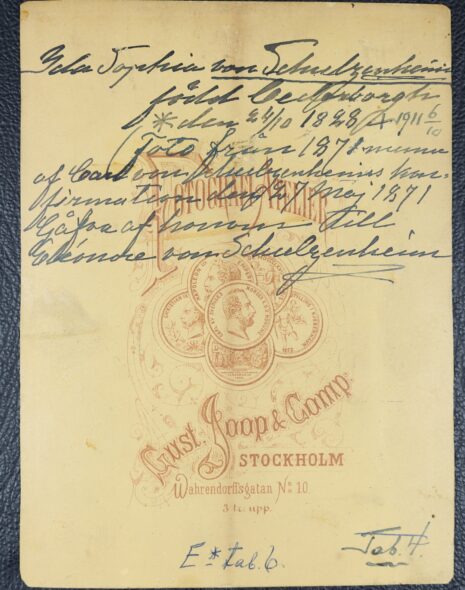 Ida Sophia von Schulzenheim
född Cederborgh
* den 24/10 1828 † 1911 6/10
Foto från 1871
af Carl von Schulzenheims kon-
firmation dag 27 Maj 1871
Gåfva af honom till
Eléonore von Schulzenheim
PHOTOGRAF. ATELIER
Gust. Joop & Comp.
STOCKHOLM
Wahrendorffsgatan No 10.
3 tr. upp.
E * tab. 6.
Tab. 4.